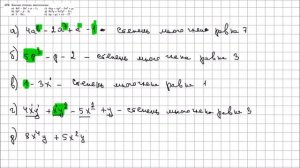 а) 4a⁶ - 2a⁷ + a² - 1 - степень многочлена равна 7
б) 5y³ - y - 2 - степень многочлена равна 3
в) 1 - 3x - степень многочлена равна 1
г) 4xy + xy² - 5x² + y - степень многочлена равна 3
д) 8x⁴y + 5x²y